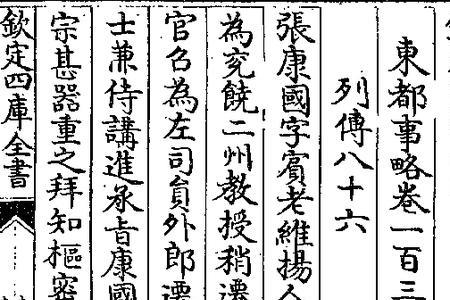 東都事略卷一百三
列傳八十六
張康國字賓老維揚人
為兖饒二州教授稍遷
官名為左司員外郎遷
士兼侍講進承㫖康國
宗甚器重之拜知樞密
欽定四庫全書